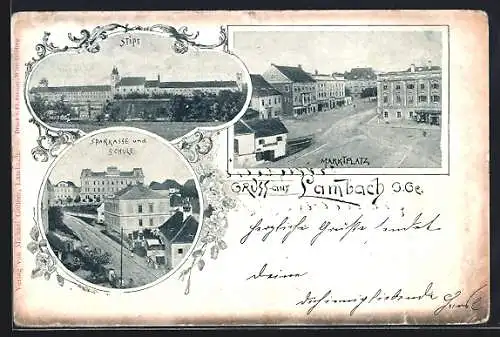 STIFT
SPARKASSE und
SCHULE.
MARKTPLATZ.
GRUSS aus Lambach O.Oe.
Herzliche Grüße sendet
Deine
Dich innig liebende
Verlag von Michael Lindner, Lambach.